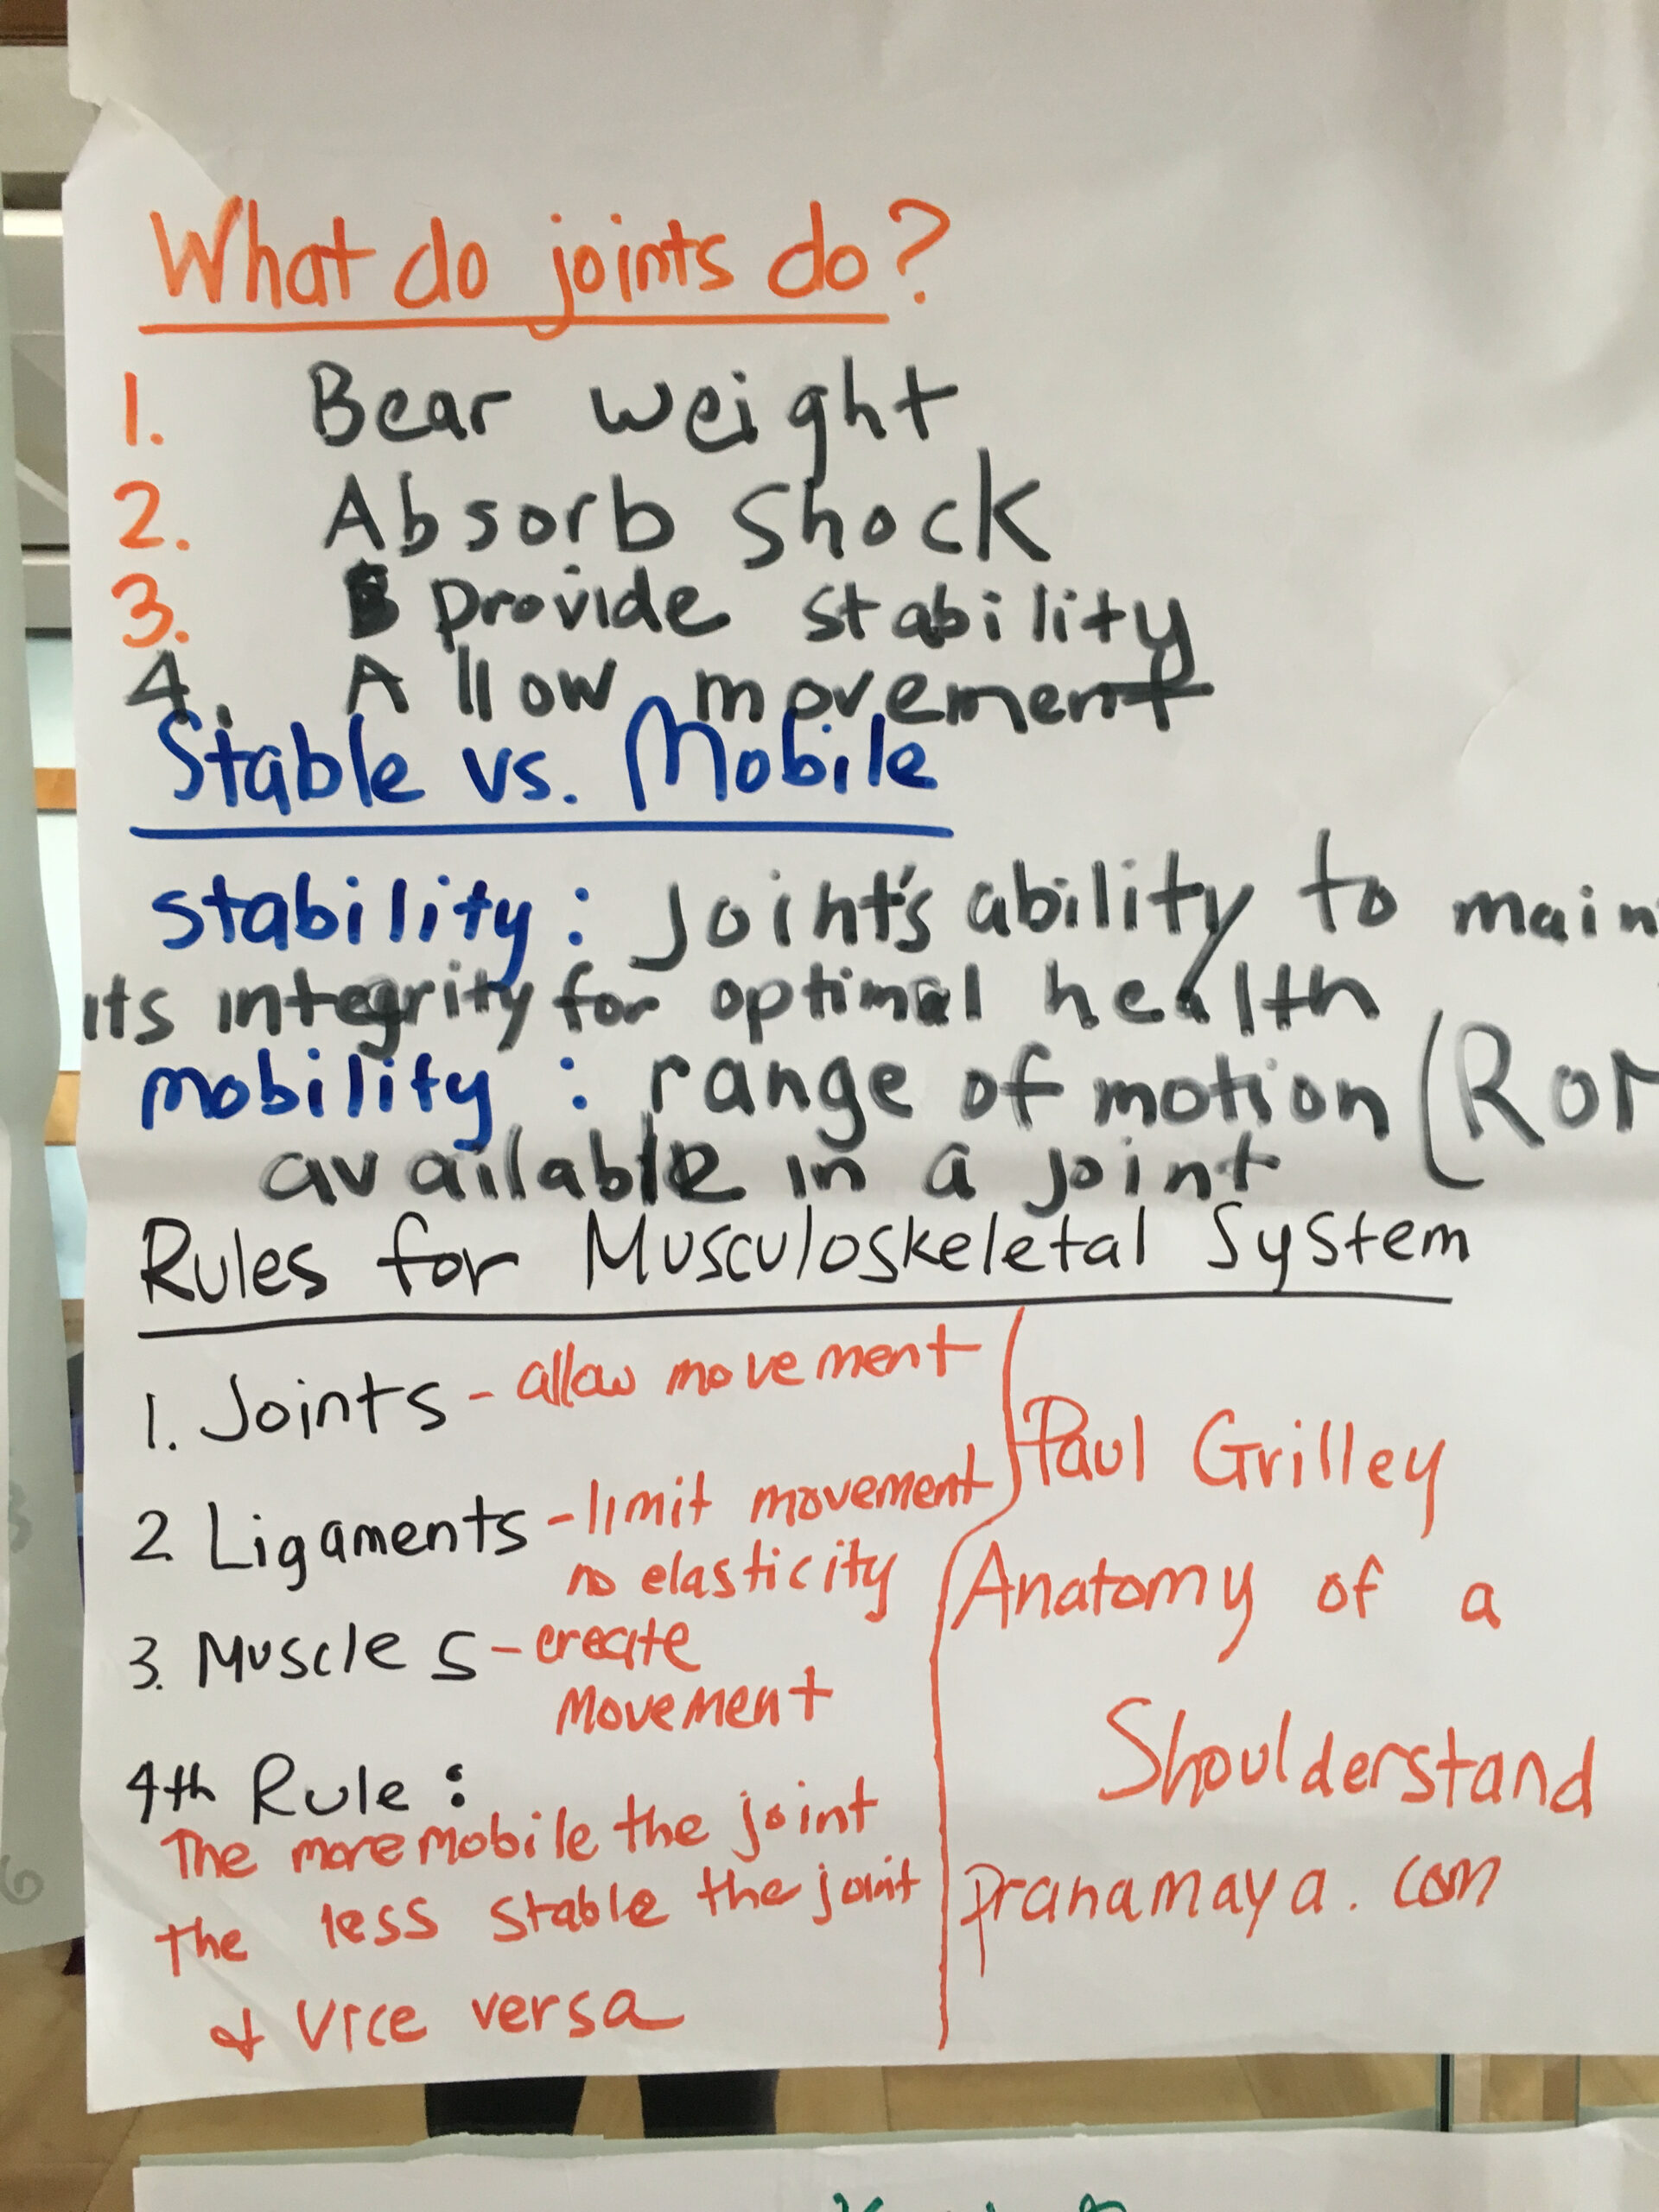 What do joints do?
1. Bear weight
2. Absorb shock
3. provide stability
4. Allow movement
Stable vs. Mobile
stability: Joint's ability to main
its integrity for optimal health
mobility: range of motion (ROM
available in a joint
Rules for Musculoskeletal System
1. Joints - allow movement
2 Ligaments - limit movement
no elasticity
3. Muscles - create
movement
4th Rule:
The more mobile the joint
the less stable the joint
& vice versa
Paul Grilley
Anatomy of a
Shoulderstand
pranamaya.com